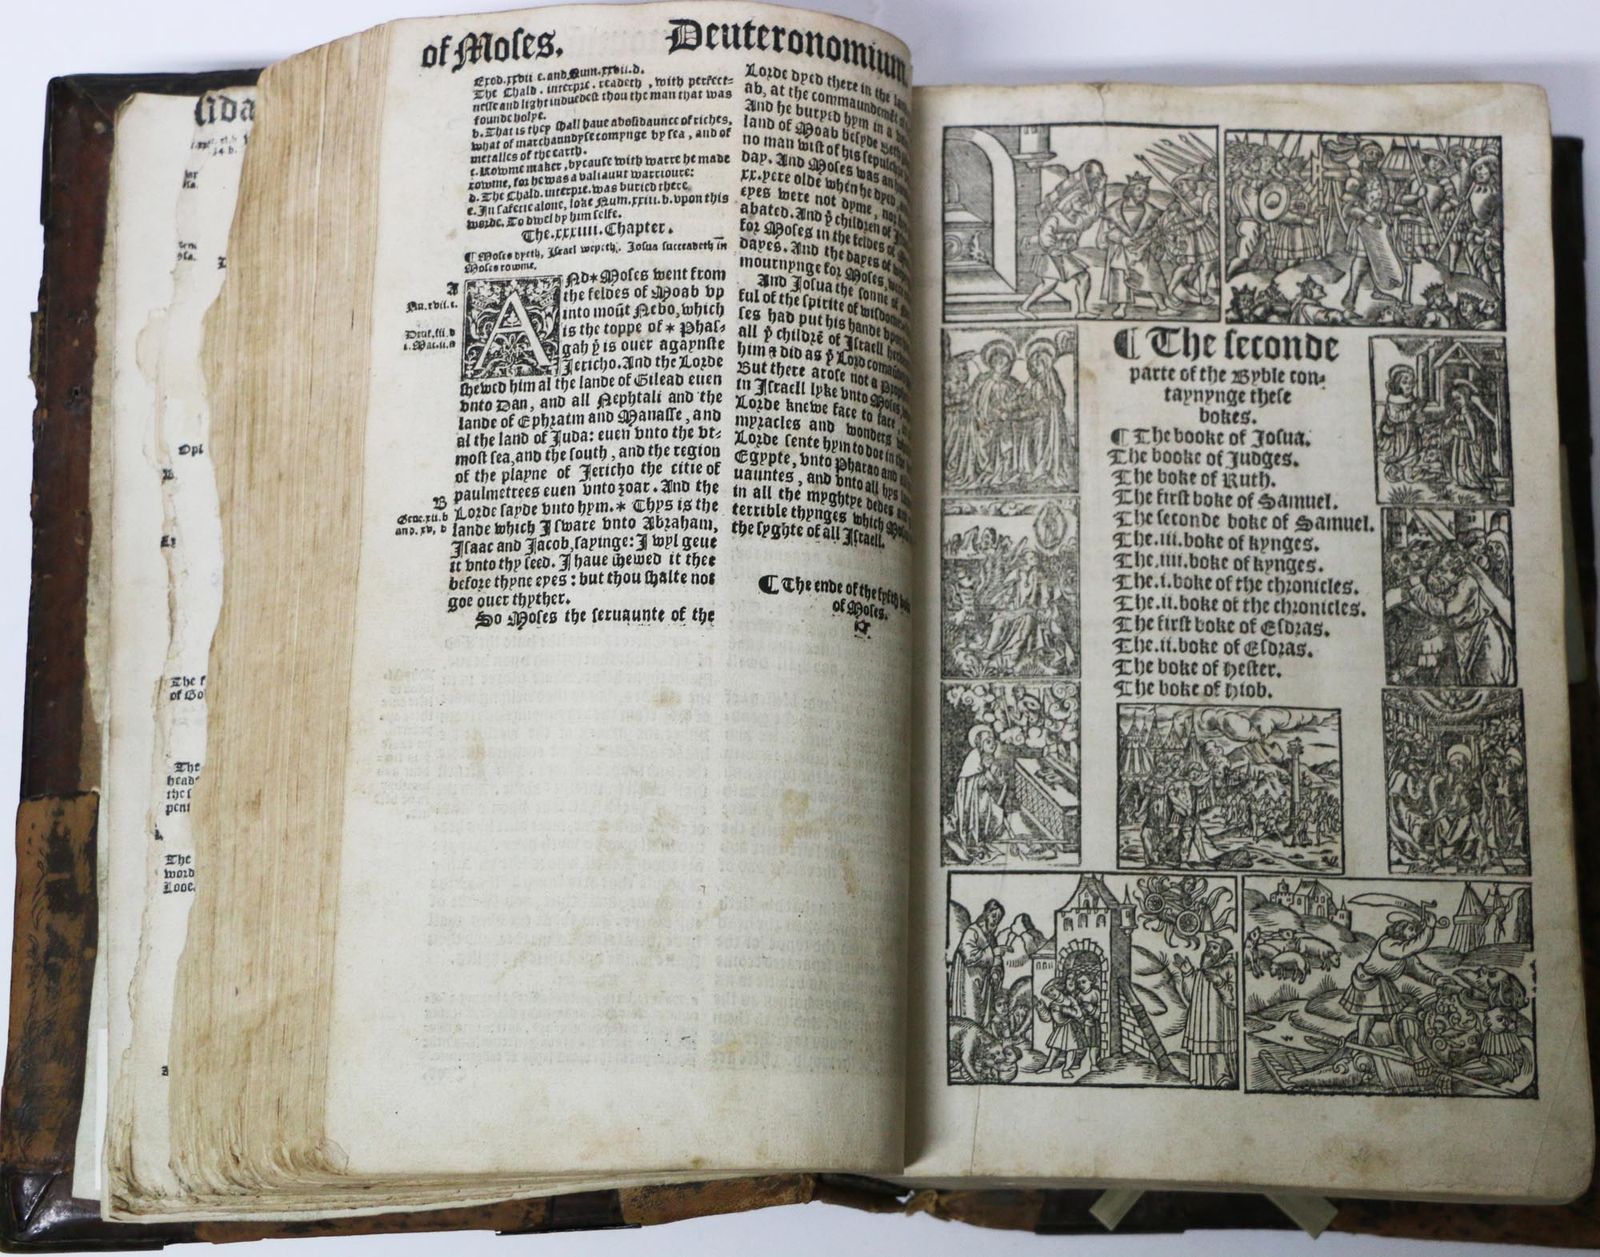 of Moses.
Deuteronomium.
Exod.xxvii c. and Num.xxvii.d.
The Chald. interpre. readeth, with perfect-
nesse and light induedest thou the man that was
founde holye.
b. That is they shall haue aboūdaunce of riches,
what of marchaundyse compnge by sea, and of
metalles of the earth.
c. Rowme maker, bycause with warre he made
rowme, for he was a valiaunt warrioure:
d. The Chald. interpre. was buried there
e. In safetie alone, loke Num.xxiii.b. vpon this
worde. To dwel by him selfe.
The.xxxiiii.Chapter.
¶ Moses dyeth, Israel wepeth. Josua succeadeth in
Moses rowme.
A
Nu.xvii.c.
i. Mac.ii.a
B
Gene.xii.b
and. xv, d
ANd* Moses went from
the feldes of Moab vp
into moūt Nebo, which
is the toppe of * Phas-
gah yͭ is ouer agaynste
Jericho. And the Lorde
shewed him al the lande of Gilead euen
vnto Dan, and all Nephtali and the
lande of Ephraim and Manasse, and
al the land of Juda: euen vnto the vt-
most sea, and the south, and the region
of the playne of Jericho the citie of
paulmetrees euen vnto zoar. And the
Lorde sayde vnto hym. * Thys is the
lande which I sware vnto Abraham,
Isaac and Jacob, sayinge: I wyl geue
it vnto thy seed. I haue shewed it thee
before thyne eyes: but thou shalte not
goe ouer thyther.
So Moses the seruaunte of the
Lorde dyed there in the
ab, at the commaundemēt
And he buryed hym in a
land of Moab besyde Beth
no man wist of his sepulch
day. And Moses was an
xx.yere olde when he dyed,
eyes were not dyme, no
abated. And yͤ children of
for Moses in the feldes of
dayes. And the dayes of
mournynge for Moses, were
And Josua the sonne of
ful of the spirite of wisdome
ses had put his hande vpon
all yͤ childrē of Israell
him & did as yͤ Lord comaūded
But there arose not a Proph
in Israell lyke vnto Moses,
Lorde knewe face to face,
myracles and wonders
Lorde sente hym to doe in the
Egypte, vnto Pharao and
uauntes, and vnto all hys
in all the myghtye dedes and
terrible thynges which
the syghte of all Israell.
¶ The ende of the fyfth
of Moses.
¶ The seconde
parte of the Byble con-
taynynge these
bokes.
¶ The booke of Josua.
The booke of Judges.
The boke of Ruth.
The first boke of Samuel.
The seconde boke of Samuel.
The.iii.boke of kynges.
The.iiii.boke of kynges.
The.i.boke of the chronicles.
The.ii.boke of the chronicles.
The first boke of Esdras.
The.ii.boke of Esdras.
The boke of Hester.
The boke of Hiob.